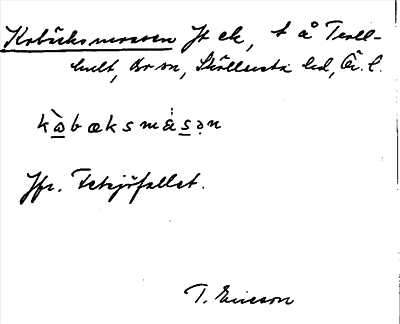 Kobäcksmossen Jt ek, t å Troll-
hult, Br sn, Sköllersta hd, Ör. l.
kàbæksmåsən
Jfr. Tetsjöfallet.
T. Ericson